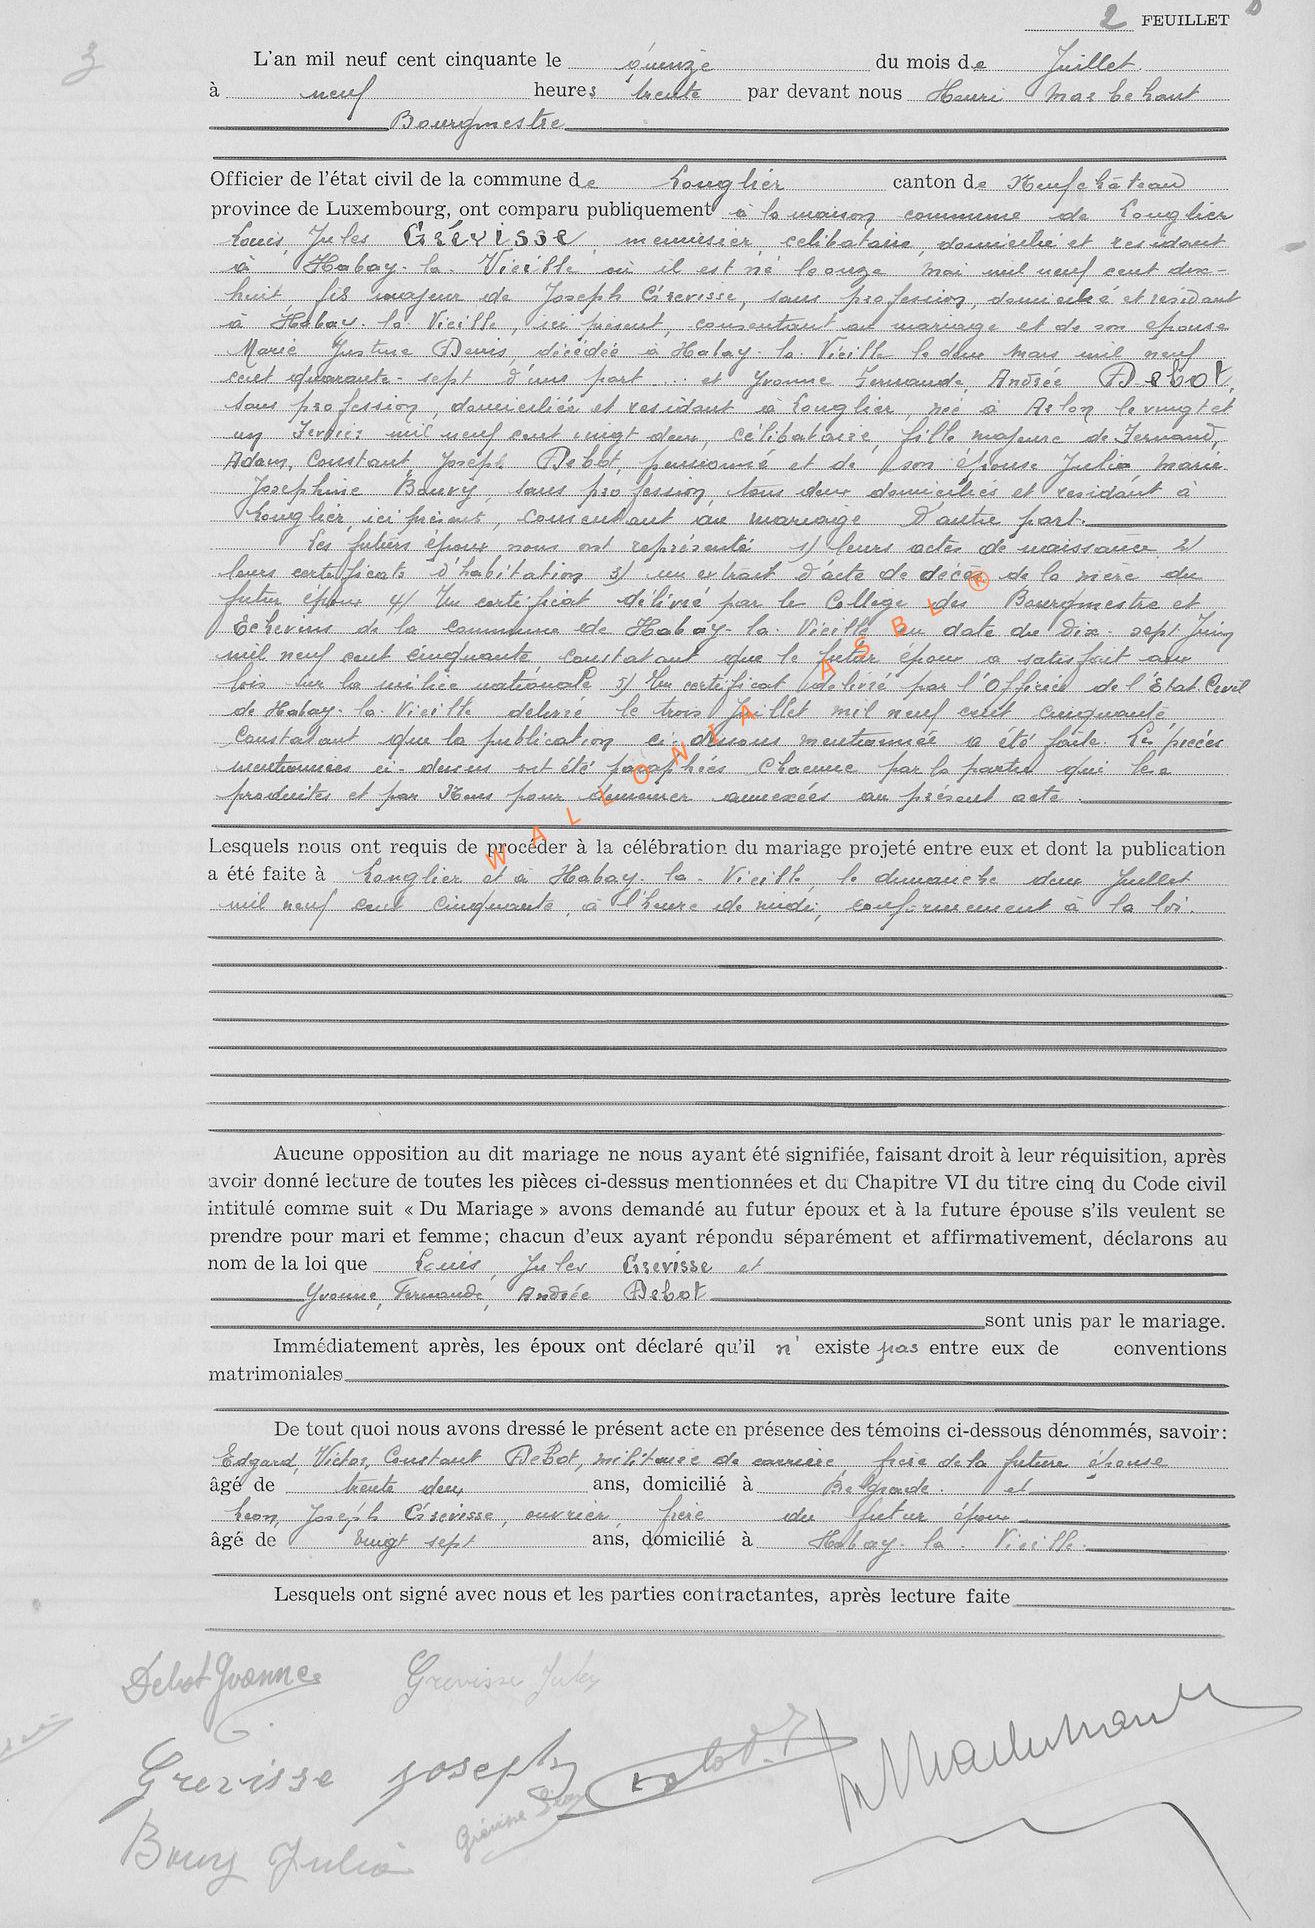 2 FEUILLET
3
L'an mil neuf cent cinquante le quinze du mois de Juillet
à neuf heures trente par devant nous Henri Marbehant
Bourgmestre
Officier de l'état civil de la commune de Longlier canton de Neufchâteau
province de Luxembourg, ont comparu publiquement à la maison commune de Longlier
Louis, Jules Grévisse, menuisier, célibataire, domicilié et résidant
à Habay-la-Vieille où il est né le onze mai mil neuf cent dix-
huit, fils majeur de Joseph Grevisse, sans profession, domicilié et résidant
à Habay-la-Vieille, ici présent, consentant au mariage et de son épouse
Marie Justine Denis, décédée à Habay-la-Vieille le deux Mars mil neuf
cent quarante-sept d'une part ... et Yvonne Fernande, Andrée Debot,
sans profession, domiciliée et résidant à Longlier, née à Arlon le vingt et
un Février mil neuf cent vingt deux, célibataire, fille majeure de Fernand,
Adam, Constant, Joseph Debot, pensionné et de son épouse Julia Marie
Josephine Bouvy, sans profession, tous deux domiciliés et résidant à
Longlier, ici présents, consentant au mariage D'autre part.
Les futurs époux nous ont représenté 1) leurs actes de naissance 2)
leurs certificats d'habitation 3) un extrait d'acte de décès de la mère du
futur époux 4) Un certificat délivré par le College des Bourgmestre et
Echevins de la commune de Habay-la-Vieille en date du Dix-sept Juin
mil neuf cent cinquante, constatant que le futur époux a satisfait aux
lois sur la milice nationale 5) Un certificat délivré par l'Officier de l'Etat Civil
de Habay-la-Vieille délivré le trois Juillet mil neuf cent cinquante,
constatant que la publication ci-dessous mentionnée a été faite. Les pièces
mentionnées ci-dessus ont été paraphées chacune par la partie qui les a
produites et par Nous pour demeurer annexées au présent acte.
WALLONIA ASBL ®
Lesquels nous ont requis de procéder à la célébration du mariage projeté entre eux et dont la publication
a été faite à Longlier et à Habay-la-Vieille, le dimanche deux Juillet
mil neuf cent cinquante, à l'heure de midi, conformément à la loi.
Aucune opposition au dit mariage ne nous ayant été signifiée, faisant droit à leur réquisition, après
avoir donné lecture de toutes les pièces ci-dessus mentionnées et du Chapitre VI du titre cinq du Code civil
intitulé comme suit « Du Mariage » avons demandé au futur époux et à la future épouse s'ils veulent se
prendre pour mari et femme; chacun d'eux ayant répondu séparément et affirmativement, déclarons au
nom de la loi que Louis, Jules Grevisse et
Yvonne, Fernande, Andrée Debot
sont unis par le mariage.
Immédiatement après, les époux ont déclaré qu'il n' existe pas entre eux de conventions
matrimoniales
De tout quoi nous avons dressé le présent acte en présence des témoins ci-dessous dénommés, savoir:
Edgard, Victor, Constant Debot, militaire de carrière, frère de la future épouse
âgé de trente deux ans, domicilié à Belgrade. et
Leon, Joseph Grevisse, ouvrier, frère du futur époux
âgé de vingt sept ans, domicilié à Habay-la-Vieille.
Lesquels ont signé avec nous et les parties contractantes, après lecture faite
Debot Yvonne Grevisse Jules
Grevisse Joseph
Grévisse Léon
Bouvy Julia